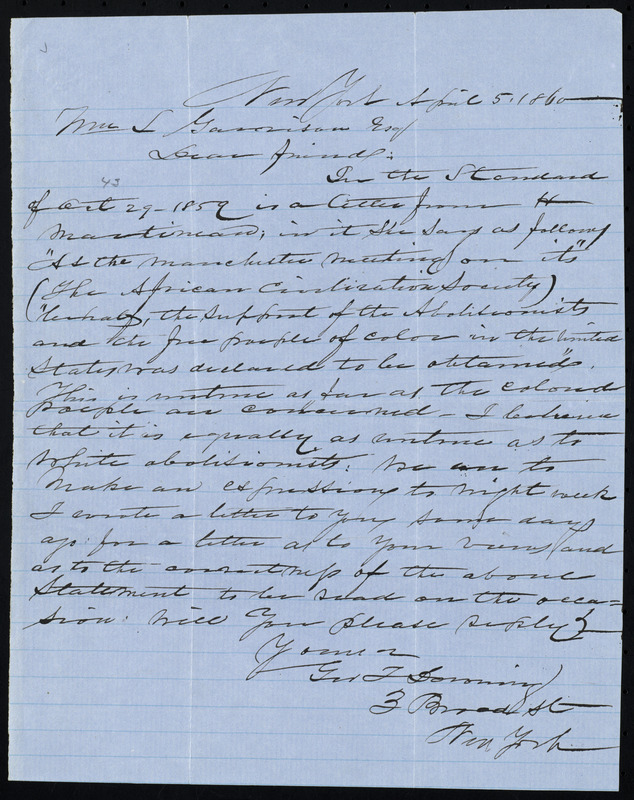 New York April 5. 1860
Wm L Garrison Esq
Dear friend:
In the Standard
43
of Oct 29 - 1859 is a letter from H
Martineau; in it she says as follows
"At the Manchester meeting on its"
(The African Civilization Society)
"behalf, the support of the Abolitionists
and the free people of color in the United
States was declared to be obtained".
This is untrue as far as the colored
people are concerned - I believe
that it is equally as untrue as to
white abolitionists: We are to
make an expression to night week
I wrote a letter to you some days
ago for a letter as to your views and
as to the correctness of the above
statement to be read on the occa=
sion: Will you please reply?
Yours
Geo T Downing
3 Broad St
New York